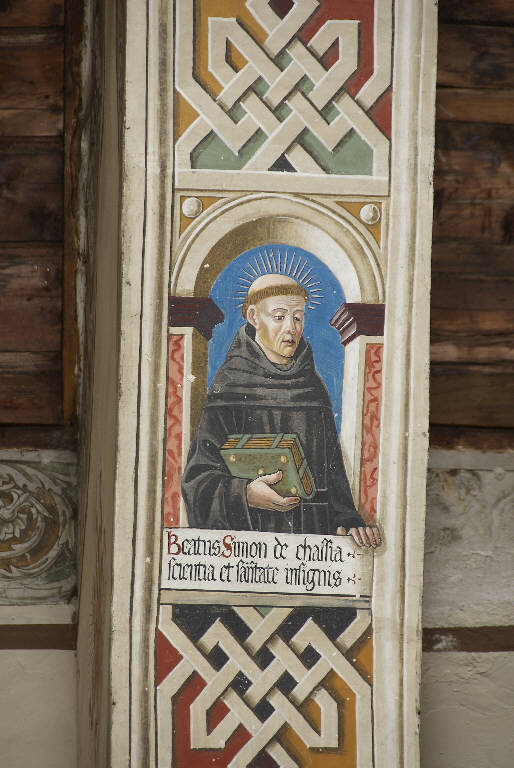 Beatus Simon de chassia
scientia et sanctitate insignis